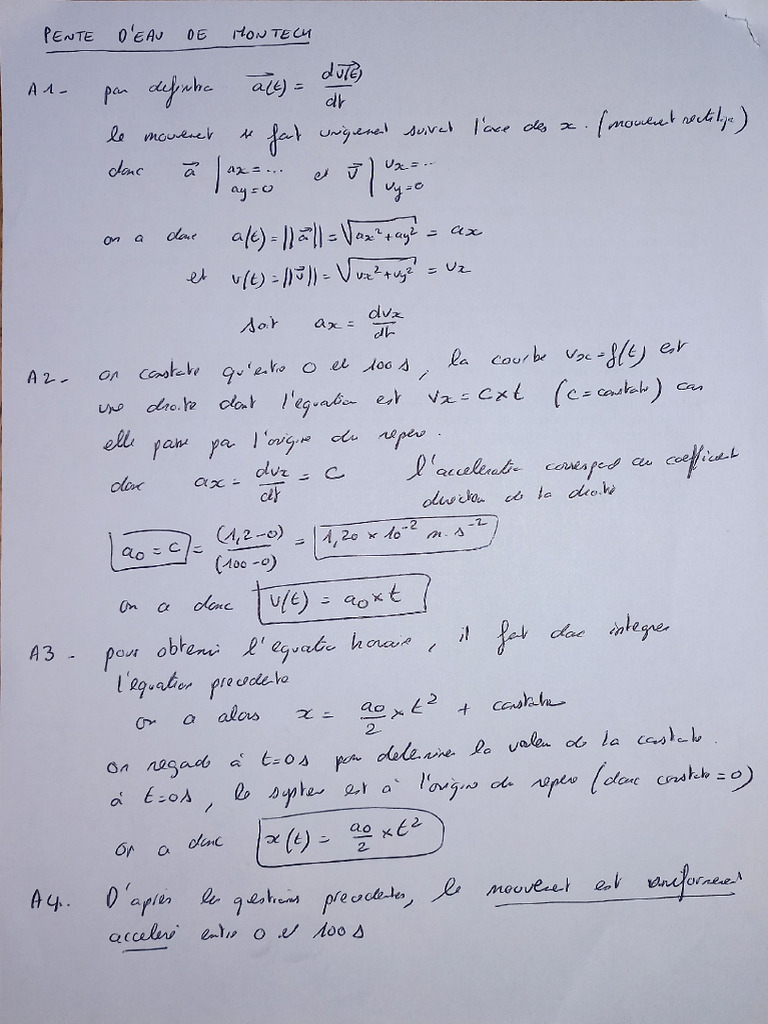 PENTE D'EAU DE MONTECH
A1- par definition a(t) = dv(t)/dt
le mouvement se fait uniquement suivant l'axe des x. (mouvement rectiligne)
donc a | ax = ... ay = 0 et v | vx = ... vy = 0
on a donc a(t) = ||a|| = √(ax² + ay²) = ax
et v(t) = ||v|| = √(vx² + vy²) = vx
soit ax = dvx/dt
A2- on constate qu'entre 0 et 100 s, la courbe vx = f(t) est
une droite dont l'equation est vx = C × t (C = constante) car
elle passe par l'origine du repere.
donc ax = dvx/dt = C l'acceleration correspond au coefficient
directeur de la droite
a0 = C = (1,2-0)/(100-0) = 1,20 × 10⁻² m.s⁻²
on a donc v(t) = a0 × t
A3- pour obtenir l'equation horaire, il faut donc integrer
l'equation precedente
on a alors x = a0/2 × t² + constante
on regarde à t=0s pour determiner la valeur de la constante.
à t=0s, le systeme est à l'origine du repere (donc constante = 0)
on a donc x(t) = a0/2 × t²
A4. D'après les questions precedentes, le mouvement est uniformement
acceleré entre 0 et 100 s